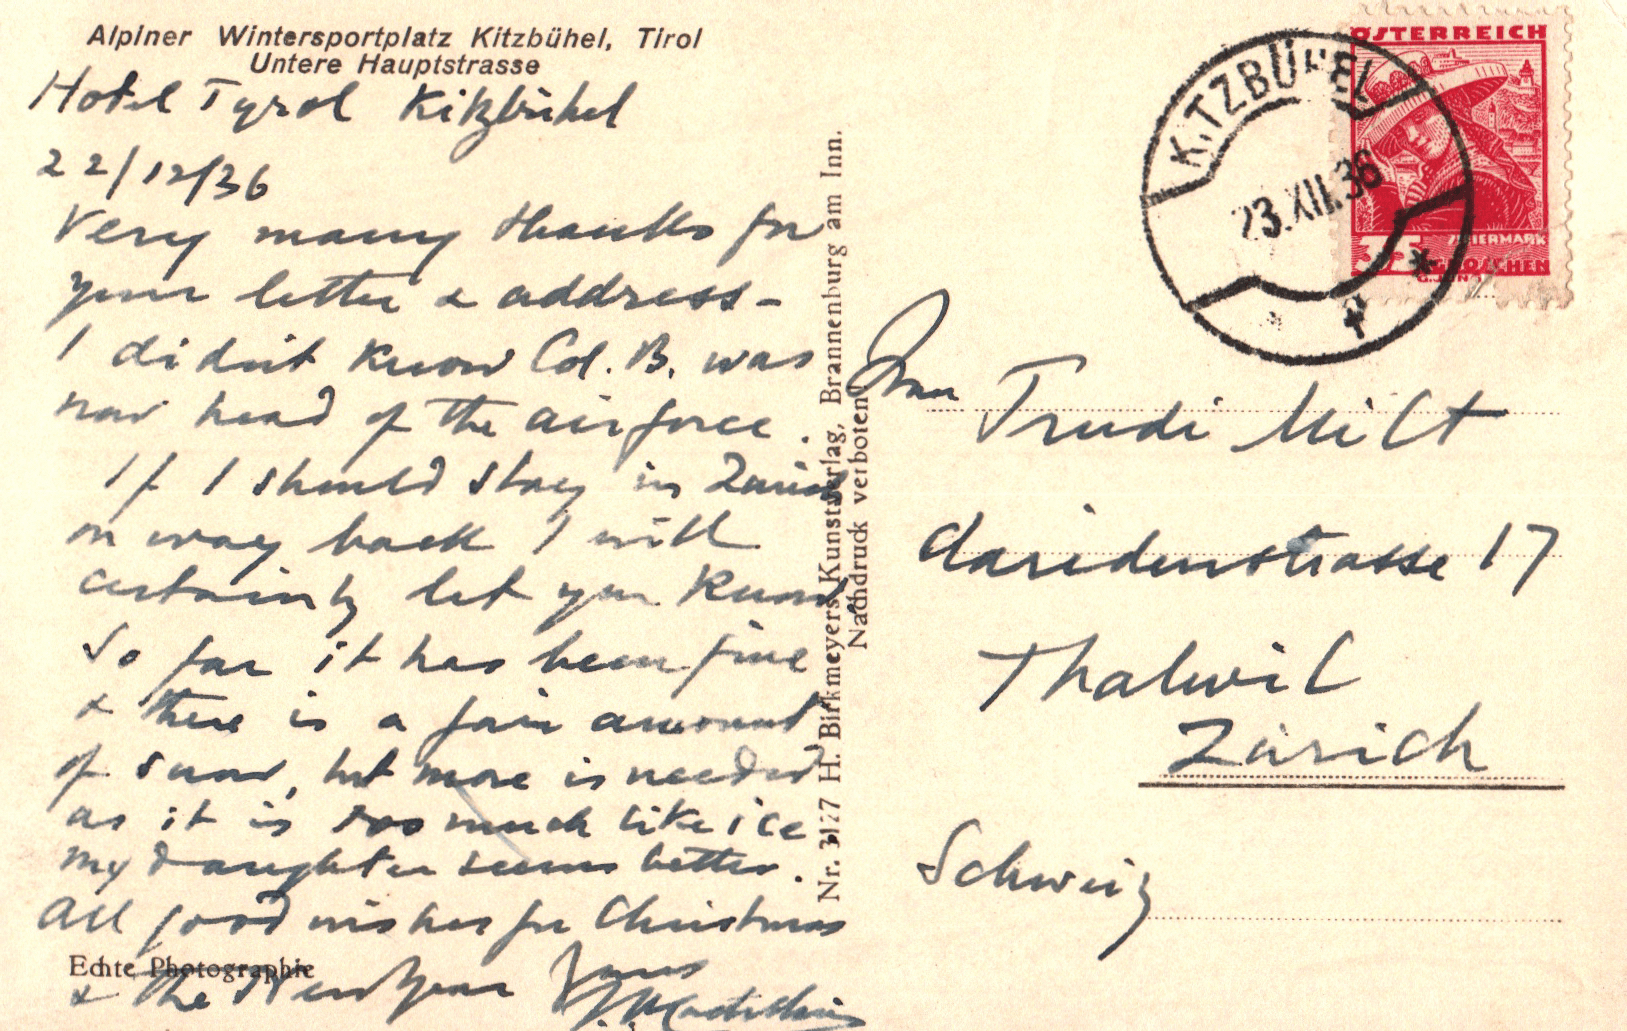 Alpiner Wintersportplatz Kitzbühel, Tirol
Untere Hauptstrasse
Hotel Tyrol Kitzbühel
22/12/36
Very many thanks for
your letter & address –
I didn't know Col. B. was
now head of the airforce.
If I should stay in Zurich
on way back I will
certainly let you know.
So far it has been fine
& there is a fair amount
of snow, but more is needed
as it is too much like ice
my daughter seems better.
All good wishes for Christmas
& the New Year Yours
Echte Photographie
Nr. 3177 H. Birkmeyers Kunstverlag, Brannenburg am Inn.
Nachdruck verboten
KITZBÜHEL
23.XII.36
ÖSTERREICH
STEIERMARK
35 GROSCHEN
Frau Trudi Milt
Claridenstrasse 17
Thalwil
Zürich
Schweiz